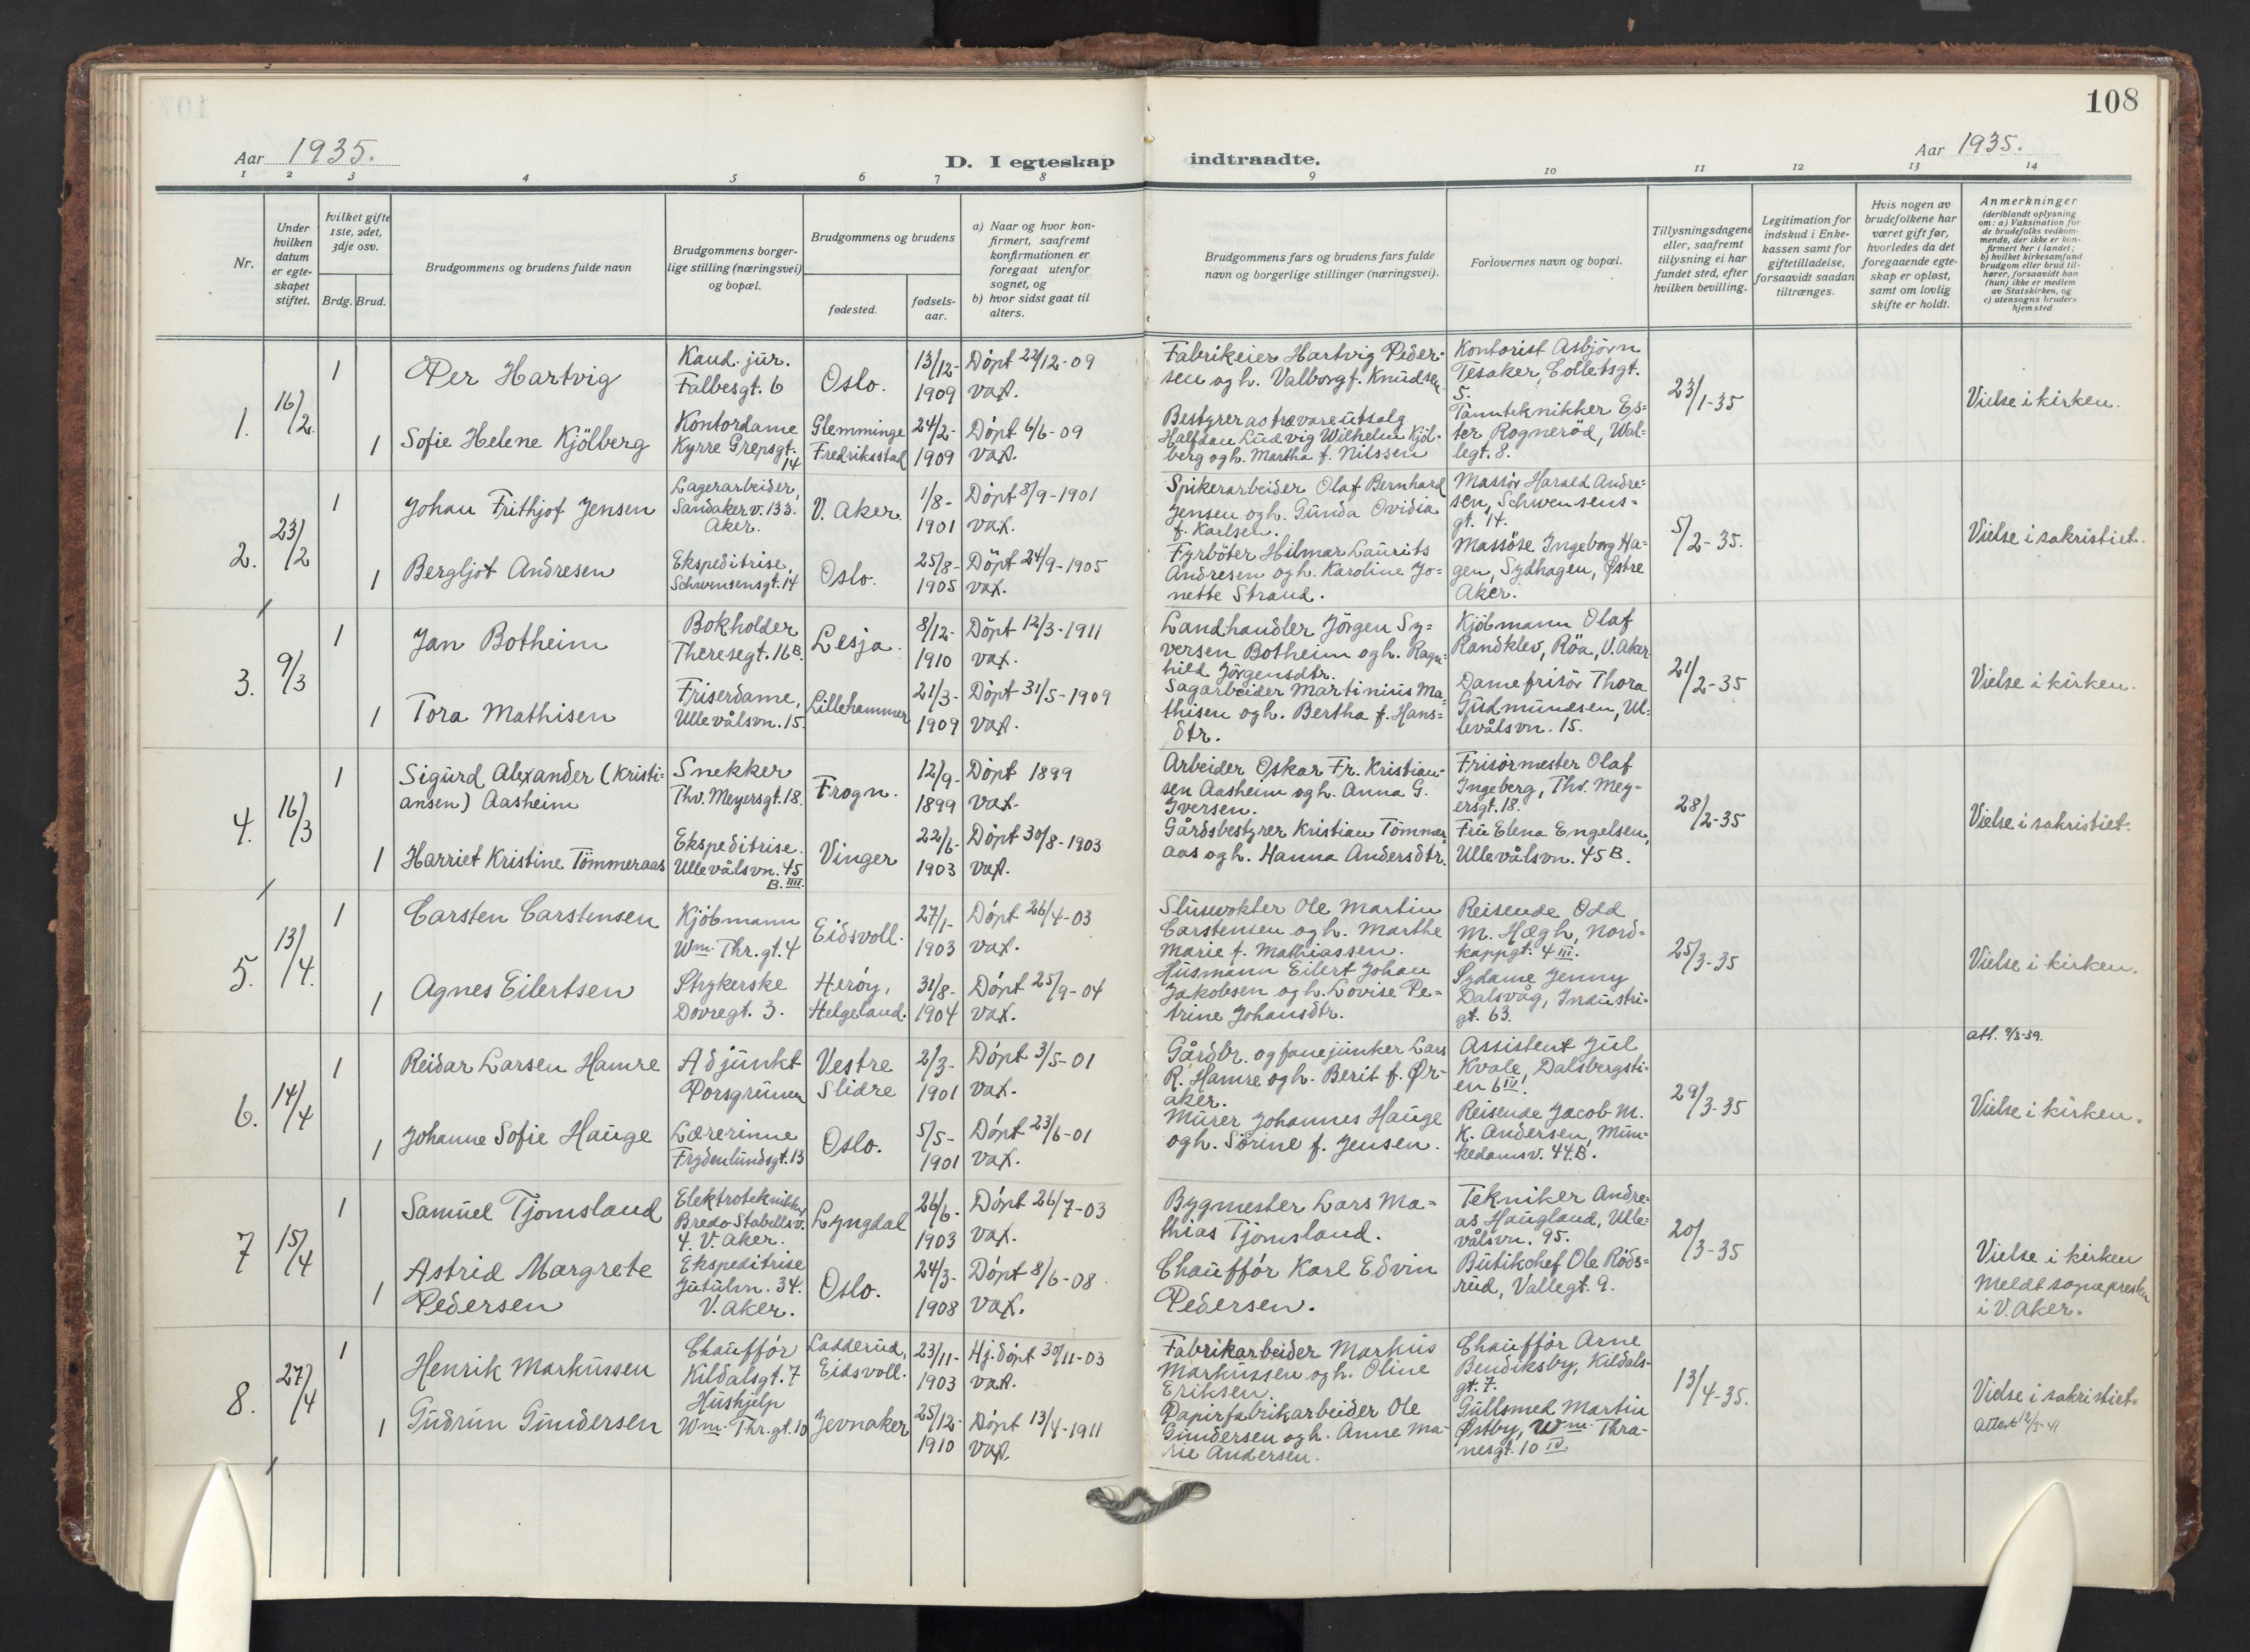 108
Aar 1935.
D. I egteskap indtraadte.
Aar 1935.
1 2 3 4 5 6 7 8 9 10 11 12 13 14
Nr.
Under
hvilken
datum
er egte-
skapet
stiftet.
hvilket gifte
1ste, 2det,
3dje osv.
Brdg. Brud.
Brudgommens og brudens fulde navn
Brudgommens borger-
lige stilling (næringsvei)
og bopæl.
Brudgommens og brudens
fødested.
fødsels-
aar.
a) Naar og hvor kon-
firmert, saafremt
konfirmationen er
foregaat utenfor
sognet, og
b) hvor sidst gaat til
alters.
Brudgommens fars og brudens fars fulde
navn og borgerlige stillinger (næringsvei).
Forlovernes navn og bopæl.
Tillysningsdagene
eller, saafremt
tillysning ei har
fundet sted, efter
hvilken bevilling.
Legitimation for
indskud i Enke-
kassen samt for
giftetilladelse,
forsaavidt saadan
tiltrænges.
Hvis nogen av
brudefolkene har
været gift før,
hvorledes da det
foregaaende egte-
skap er opløst,
samt om lovlig
skifte er holdt.
Anmerkninger
(deriblandt oplysning
om: a) Vaksination for
de brudefolks vedkom-
mende, der ikke er kon-
firmert her i landet;
b) hvilket kirkesamfund
brudgom eller brud til-
hører, forsaavidt han
(hun) ikke er medlem
av Statskirken, og
c) utensogns bruders
hjemsted
1.
16/2.
1
Per Hartvig
Kand. jur.
Falbesgt. 6
Oslo.
13/12-
1909
Døpt 22/12-09
vax.
Fabrikeier Hartvig Peder-
sen og h. Valborg f. Knudsen
Kontorist Asbjørn
Tesaker, Colletsgt.
5.
23/1-35
Vielse i kirken.
1
Sofie Helene Kjölberg
Kontordame
Kyrre Grepsgt.
14
Glemminge
Fredriksstad
24/2-
1909
Döpt 6/6-09
vax.
Bestyrer as trævareutsalg
Halfdan Ludvig Wilhelm Kjöl-
berg og h. Martha f. Nilssen
Tannteknikker Es-
ter Rogneröd, Wal-
legt. 8.
2.
23/2
1
Johan Frithjof Jensen
Lagerarbeider,
Sandakerv. 133.
Aker.
V. Aker.
1/8-
1901
Döpt 8/9-1901
vax.
Spikerarbeider Olaf Bernhard
Jensen og h. Gunda Ovidia
f. Karlsen.
Massör Harald Andre-
sen, Schwensens-
gt. 14.
5/2-35.
Vielse i sakristiet.
1
Bergljot Andresen
Ekspeditrise,
Schwensensgt. 14
Oslo.
25/8-
1905
Döpt 24/9-1905
vax.
Fyrböter Hilmar Laurits
Andresen og h. Karoline Jo-
nette Strand.
Massöse Ingeborg Ha-
gen, Sydhagen, Østre
Aker.
3.
9/3
1
Jan Botheim
Bokholder
Theresegt. 16B.
Lesja.
8/12-
1910
Döpt 12/3-1911
vax.
Landhandler Jörgen Sy-
versen Botheim og h. Ragn-
hild Jörgensdtr.
Kjöbmann Olaf
Randklev, Röa, V. Aker
21/2-35
Vielse i kirken.
1
Tora Mathisen
Friserdame,
Ullevålsvn. 15.
Lillehammer
21/3-
1909
Döpt 31/5-1909
vax.
Sagarbeider Martinius Ma-
thisen og h. Bertha f. Hans-
dtr.
Damefrisör Thora
Gudmundsen, Ul-
levålsvn. 15.
4.
16/3
1
Sigurd Alexander (Kristi-
ansen) Aasheim
Snekker
Thv. Meyersgt. 18.
Frogn.
12/9-
1899
Döpt 1899
vax.
Arbeider Oskar Fr. Kristian-
sen Aasheim og h. Anna G.
Iversen.
Frisörmester Olaf
Ingeberg, Thv. Mey-
ersgt. 18.
28/2-35
Vielse i sakristiet.
1
Harriet Kristine Tömmeraas
Ekspeditrise.
Ullevålsvn. 45
B. IIII
Vinger
22/6-
1903
Döpt 30/8-1903
vax.
Gårdsbestyrer Kristian Tömmer-
aas og h. Hanna Andersdtr.
Fru Elena Engelsen,
Ullevålsvn. 45B.
5.
13/4.
1
Carsten Carstensen
Kjöbmann
Wm. Thr. gt. 4
Eidsvoll.
27/1-
1903
Döpt 26/4-03
vax.
Slusevokter Ole Martin
Carstensen og h. Marthe
Marie f. Mathiassen.
Reisende Odd
M. Hægh, Nord-
kappgt. 4 III.
25/3-35
Vielse i kirken.
1
Agnes Eilertsen
Strykerske
Dovregt. 3.
Heröy,
Helgeland.
31/8-
1904
Döpt 25/9-04
vax.
Husmann Eilert Johan
Jakobsen og h. Lovise Pe-
trine Johansdtr.
Sydame Jenny
Dalsvåg, Industri-
gt. 63.
6.
14/4
1
Reidar Larsen Hamre
Adjunkt
Porsgrunn
Vestre
Slidre
2/3-
1901
Döpt 3/5-01
vax.
Gårdbr. og fanejunker Lars
R. Hamre og h. Berit f. Ør-
aker.
Assistent Jul
Kvale, Dalsbergsti-
en 6 IV.
29/3-35
att. 9/3-39.
Vielse i kirken.
1
Johanne Sofie Hauge
Lærerinne
Frydenlundsgt. 13
Oslo.
5/5-
1901
Döpt 23/6-01
vax.
Murer Johannes Hauge
og h. Sörine f. Jensen.
Reisende Jacob M.
K. Andersen, Mun-
kedamsv. 44.B.
7
15/4
1
Samuel Tjomsland
Elektrotekniker
Bredo Stabellsv.
4. V. Aker.
Lyngdal
26/6-
1903
Döpt 26/7-03
vax.
Bygmester Lars Ma-
thias Tjomsland.
Tekniker Andre-
as Haugland, Ulle-
vålsvn. 95.
20/3-35
Vielse i kirken
Meldt sognepresten
i V. Aker.
1
Astrid Margrete
Pedersen
Ekspeditrise
Jutulvn. 34.
V. Aker.
Oslo.
24/3-
1908
Döpt 8/6-08.
vax.
Chaufför Karl Edvin
Pedersen.
Butikchef Ole Röds-
rud, Vallegt. 9.
8.
27/4
1
Henrik Markussen
Chaufför
Kildalsgt. 7
Ladderud,
Eidsvoll.
23/11-
1903
Hj.döpt 30/11-03
vax.
Fabrikarbeider Markus
Markussen og h. Oline
Eriksen.
Chaufför Arne
Bendiksby, Kildals-
gt. 7.
13/4-35.
Vielse i sakristiet.
Attest 12/5-41
1
Gudrun Gundersen
Hushjelp
Wm. Thr. gt. 10
Jevnaker
25/12-
1910
Döpt 13/4-1911
vax.
Papirfabrikarbeider Ole
Gundersen og h. Anne Ma-
rie Andersen.
Gullsmed Martin
Østby, Wm. Thra-
nesgt. 10 IV.